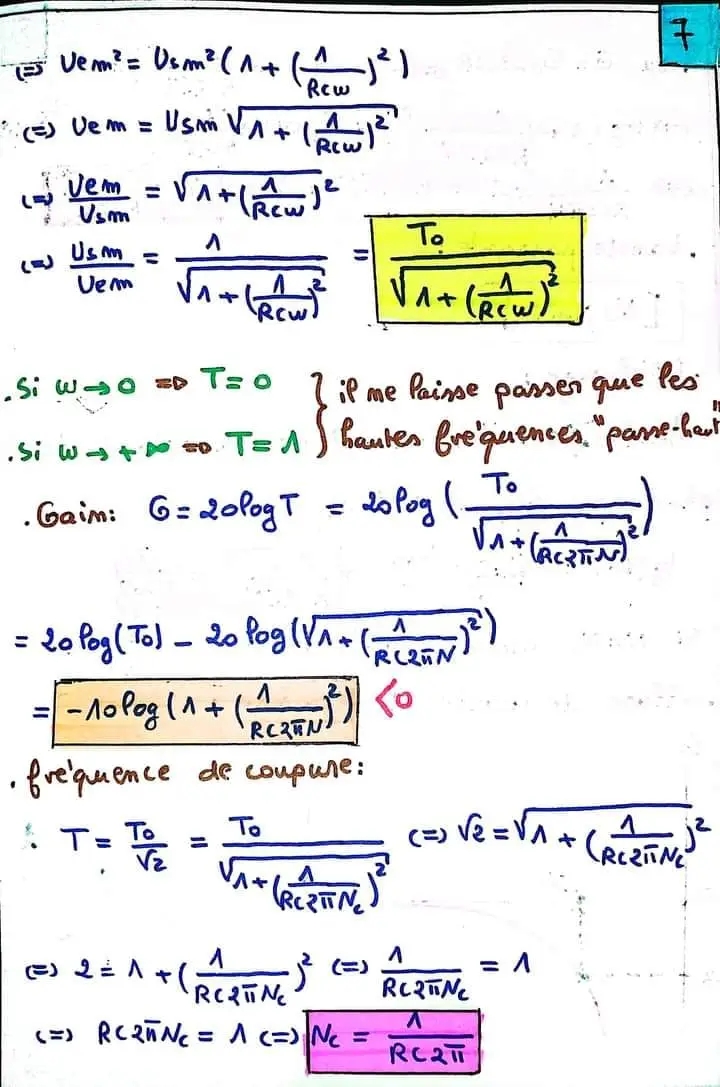 7
(=) Uem² = Usm² (1 + (1/RCω)²)
(=) Uem = Usm √(1 + (1/RCω)²)
(=) Uem/Usm = √(1 + (1/RCω)²)
(=) Usm/Uem = 1/√(1 + (1/RCω)²) = T₀/√(1 + (1/RCω)²)
. Si ω → 0 => T = 0 } il me laisse passer que les
. Si ω → +∞ => T = 1 } hautes fréquences "passe-haut"
. Gain: G = 20 log T = 20 log (T₀/√(1 + (1/RC2πN)²))
= 20 log(T₀) - 20 log(√(1 + (1/RC2πN)²))
= -10 log(1 + (1/RC2πN)²) <0
. fréquence de coupure:
. T = T₀/√2 = T₀/√(1 + (1/RC2πNc)²) (=) √2 = √(1 + (1/RC2πNc)²)
(=) 2 = 1 + (1/RC2πNc)² (=) 1/RC2πNc = 1
(=) RC2πNc = 1 (=) Nc = 1/RC2π